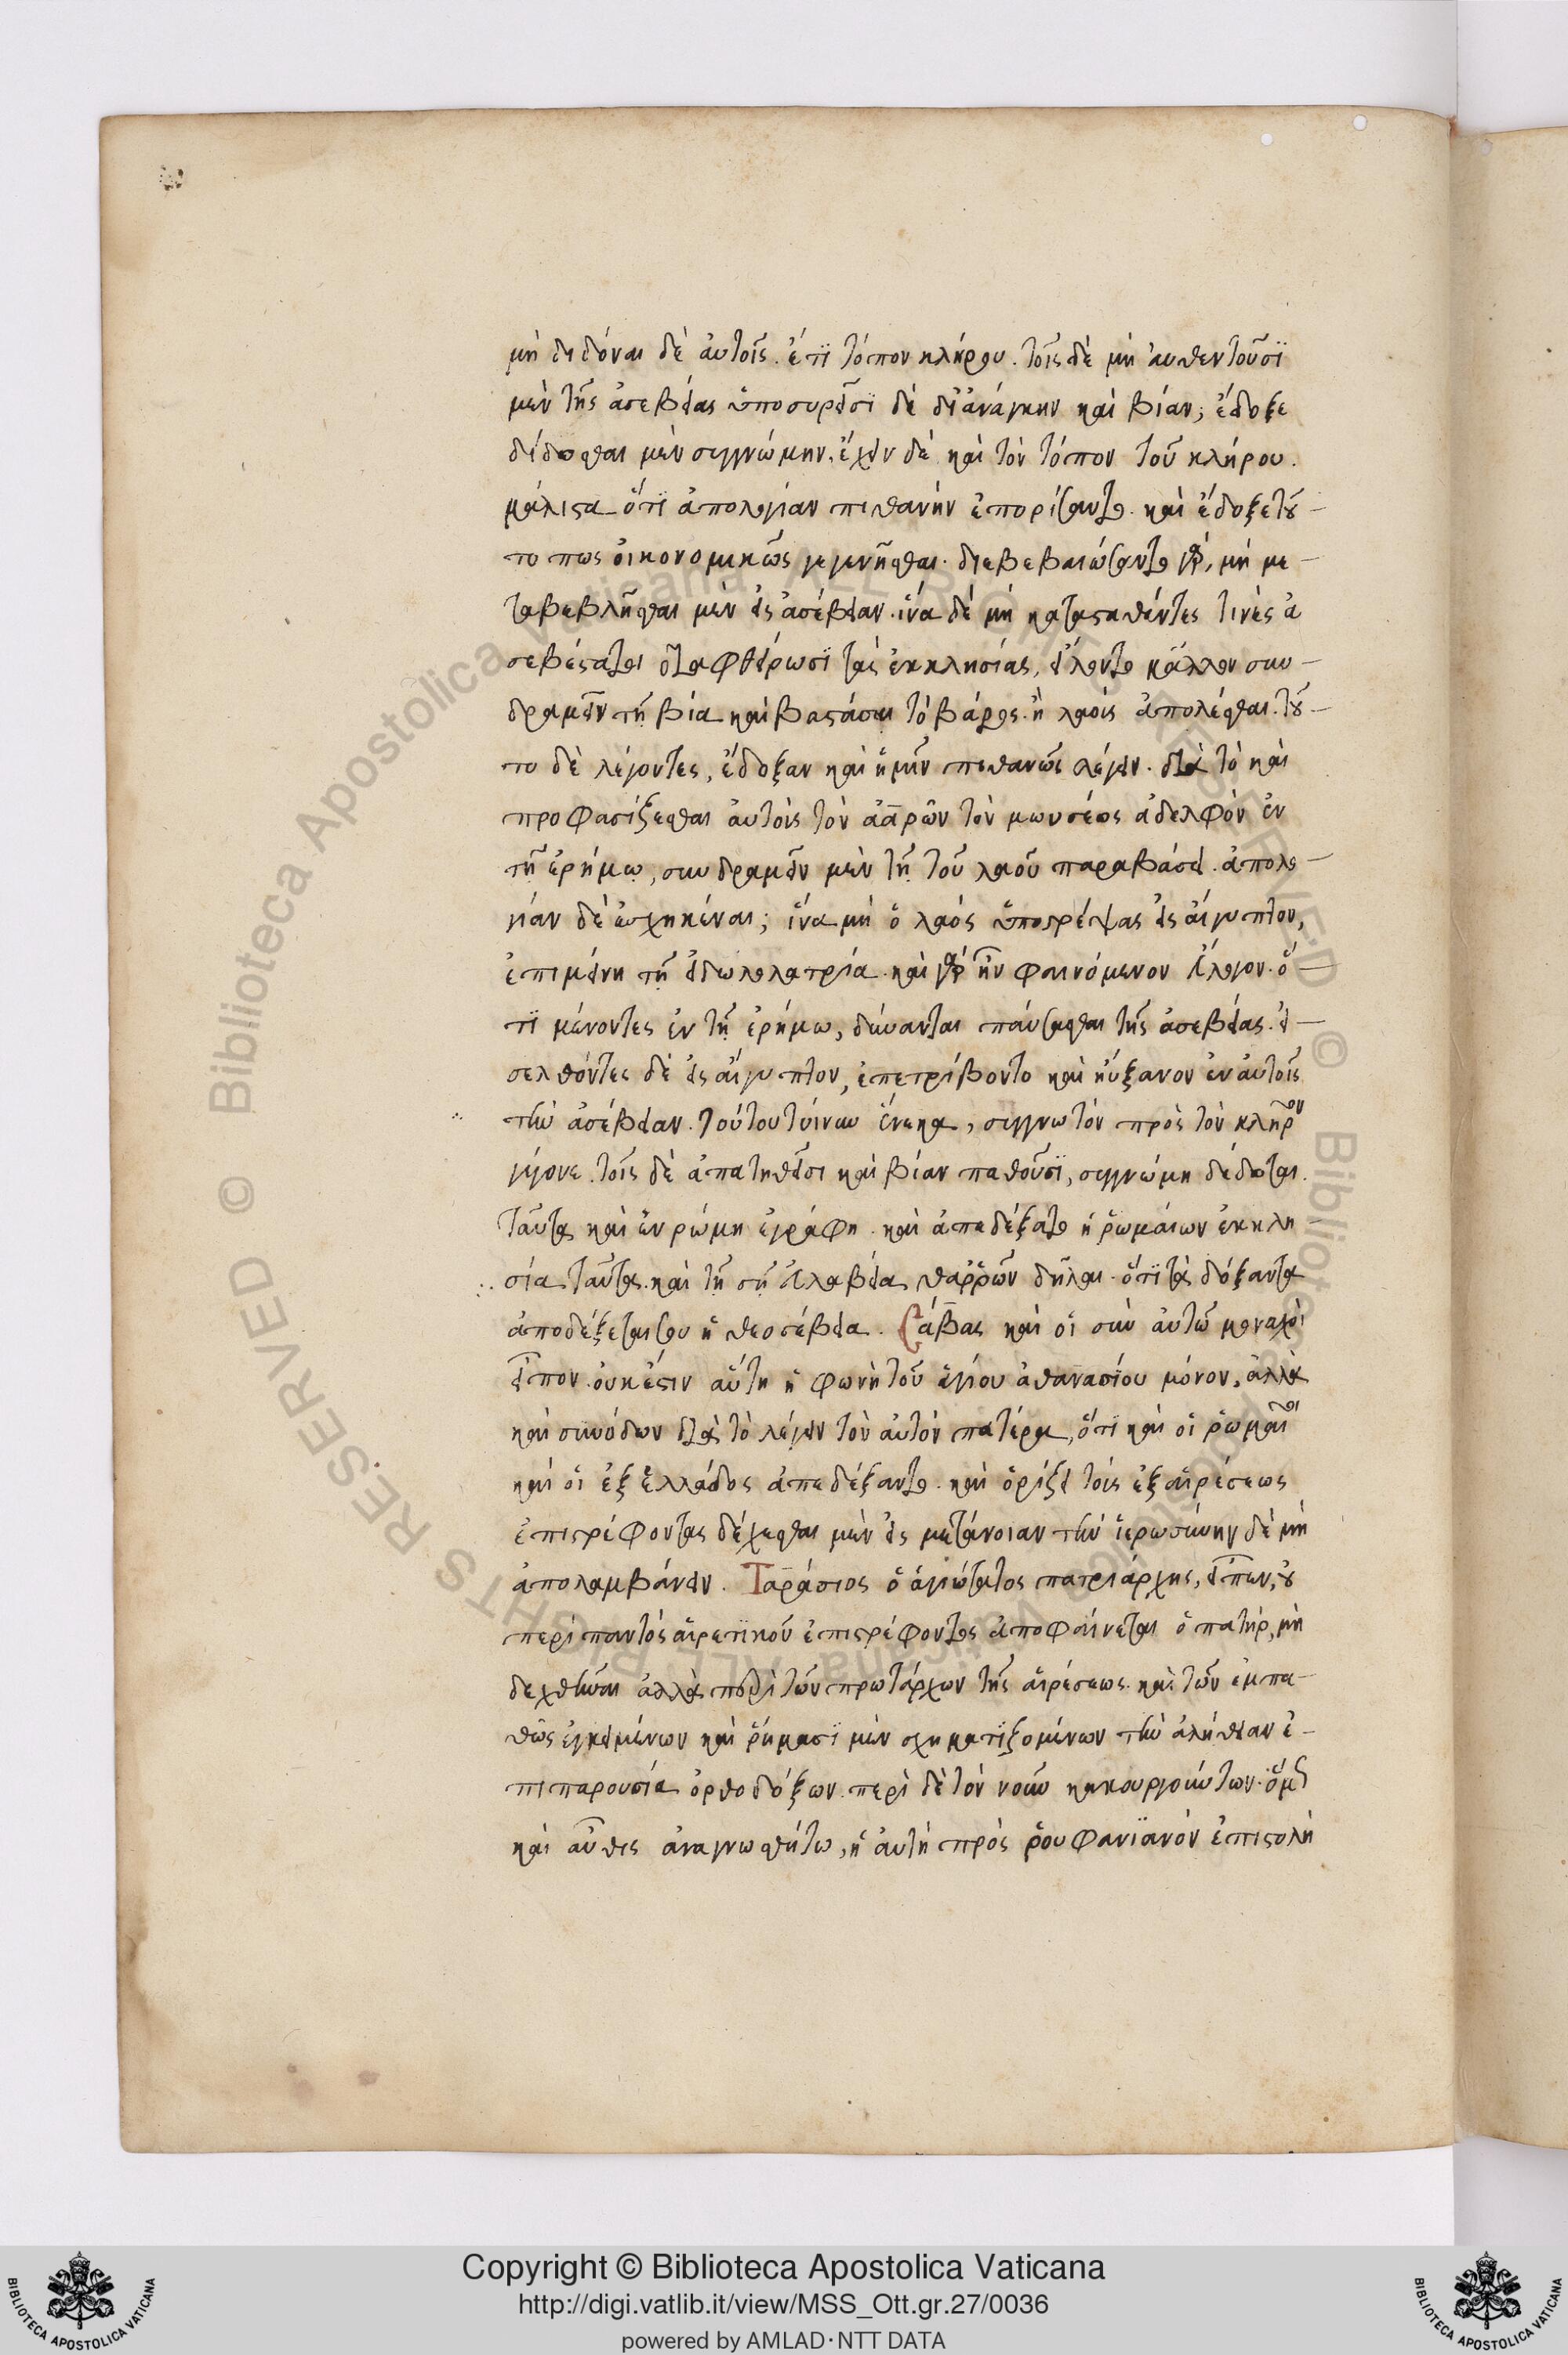 μὴ διδόναι δὲ αὐτοῖς. ἔτϊ τόπον κλήρου. τοῖς δὲ μὴ αὐθεντοῦσϊ
μὲν τῆς ἀσεβείας ὑποσυρεῖσϊ δὲ δι' ἀνάγκην καὶ βίαν, ἔδοξε
δίδοσθαι μὲν συγγνώμην, ἔχειν δὲ καὶ τὸν τόπον τοῦ κλήρου.
μάλιστα ὅτϊ ἀπολογίαν πιθανὴν ἐπορίσαντο. καὶ ἔδοξε τοῦ
το πως οἰκονομικῶς γεγενῆσθαι. διεβεβαιώσαντο γὰρ, μὴ με
ταβεβλῆσθαι μὲν εἰς ἀσέβειαν. ἵνα δὲ μὴ κατασταθέντες τινὲς ἀ
σεβέστατοι διαφθείρωσϊ τὰς ἐκκλησίας, εἵλοντο μᾶλλον συν
δραμεῖν τῇ βία καὶ βαστάσαι τὸ βάρος. ἢ λαοὺς ἀπολέσθαι. τοῦ
το δὲ λέγοντες, ἔδοξαν καὶ ἡμῖν πιθανῶς λέγειν. διὰ τὸ καὶ
προφασίζεσθαι αὐτοὺς τὸν ἀαρὼν τὸν μωυσέως ἀδελφὸν ἐν
τῇ ἐρήμω, συνδραμεῖν μὲν τῇ τοῦ λαοῦ παραβάσει. ἀπολο
γίαν δὲ ἐσχηκέναι, ἵνα μὴ ὁ λαὸς ὑποστρέψας εἰς αἴγυπτον,
ἐπιμείνη τῇ εἰδωλολατρία. καὶ γὰρ ἦν φαινόμενον εὔλογον. ὅ
τϊ μένοντες ἐν τῇ ἐρήμω, δύνανται παύσασθαι τῆς ἀσεβείας. εἰ
σελθόντες δὲ εἰς αἴγυπτον, ἐπετρίβοντο καὶ ηὔξανον ἐν αὐτοῖς
τὴν ἀσέβειαν. τούτου τοίνυν ἕνεκα, συγγνωτὸν πρὸς τὸν κλῆρον
γέγονε. τοῖς δὲ ἀπατηθεῖσι καὶ βίαν παθοῦσϊ, συγγνώμη δέδοται.
ταῦτα καὶ ἐν ρώμη ἐγράφη. καὶ ἀπεδέξατο ἡ ῥωμαίων ἐκκλη
σία ταῦτα. καὶ τῇ σῇ εὐλαβεία θαῤῥῶν δηλῶ. ὅτϊ τὰ δόξαντα
ἀποδέξεταί σου ἡ θεοσέβεια. Σάβας καὶ οἱ σὺν αὐτῶ μοναχοὶ
εἶπον. οὐκ ἔστιν αὕτη ἡ φωνὴ τοῦ ἁγίου ἀθανασίου μόνον, ἀλλὰ
καὶ συνόδων διὰ τὸ λέγειν τὸν αὐτὸν πατέρα, ὅτι καὶ οἱ ῥωμαῖοι
καὶ οἱ ἐξ ἑλλάδος ἀπεδέξαντο. καὶ ὁρίζει τοὺς ἐξ αἱρέσεως
ἐπιστρέφοντας δέχεσθαι μὲν εἰς μετάνοιαν τὴν ἱερωσύνην δὲ μὴ
ἀπολαμβάνειν. Ταράσιος ὁ ἁγιώτατος πατριάρχης, εἶπεν, οὐ
περὶ παντὸς αἱρετϊκοῦ ἐπιστρέφοντος ἀποφαίνεται ὁ πατὴρ, μὴ
δεχθῆναι ἀλλὰ περὶ τῶν πρωτάρχων τῆς αἱρέσεως. καὶ τῶν ἐμπα
θῶς ἐγκειμένων καὶ ῥήμασϊ μὲν σχηματϊζομένων τὴν ἀλήθειαν ἐ
πι παρουσία ὀρθοδόξων. περὶ δὲ τὸν νοῦν κακουργούντων. ὅμως
καὶ αὖθις ἀναγνωσθήτω, ἡ αὐτὴ πρὸς ῥουφανϊανὸν ἐπιστολὴ